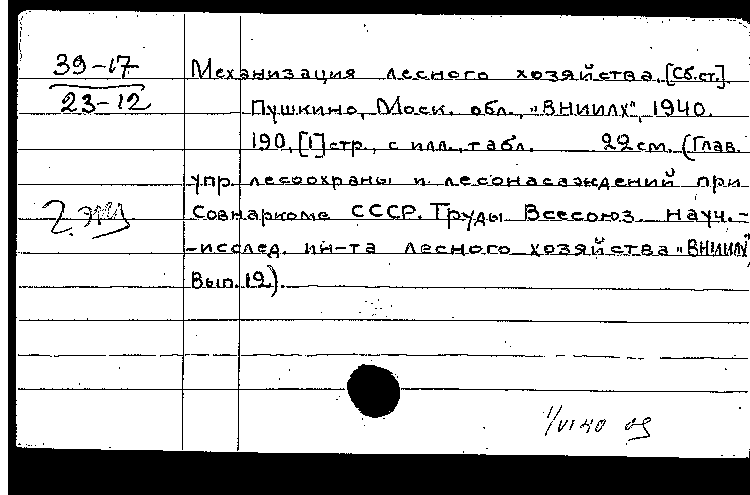 39-17
23-12
Механизация лесного хозяйства. [Сб.ст.].
Пушкино, Моск. обл., "ВНИИЛХ", 1940.
190, [1] стр., с илл., табл. 22 см. (Глав.
упр. лесоохраны и лесонасаждений при
Совнаркоме СССР. Труды Всесоюз. науч.-
-исслед. ин-та лесного хозяйства "ВНИИЛХ"
Вып. 12).
2 экз.
1/VI 40